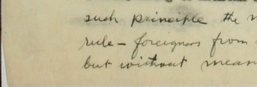 such principle the
rule – foreigners from
but without mean